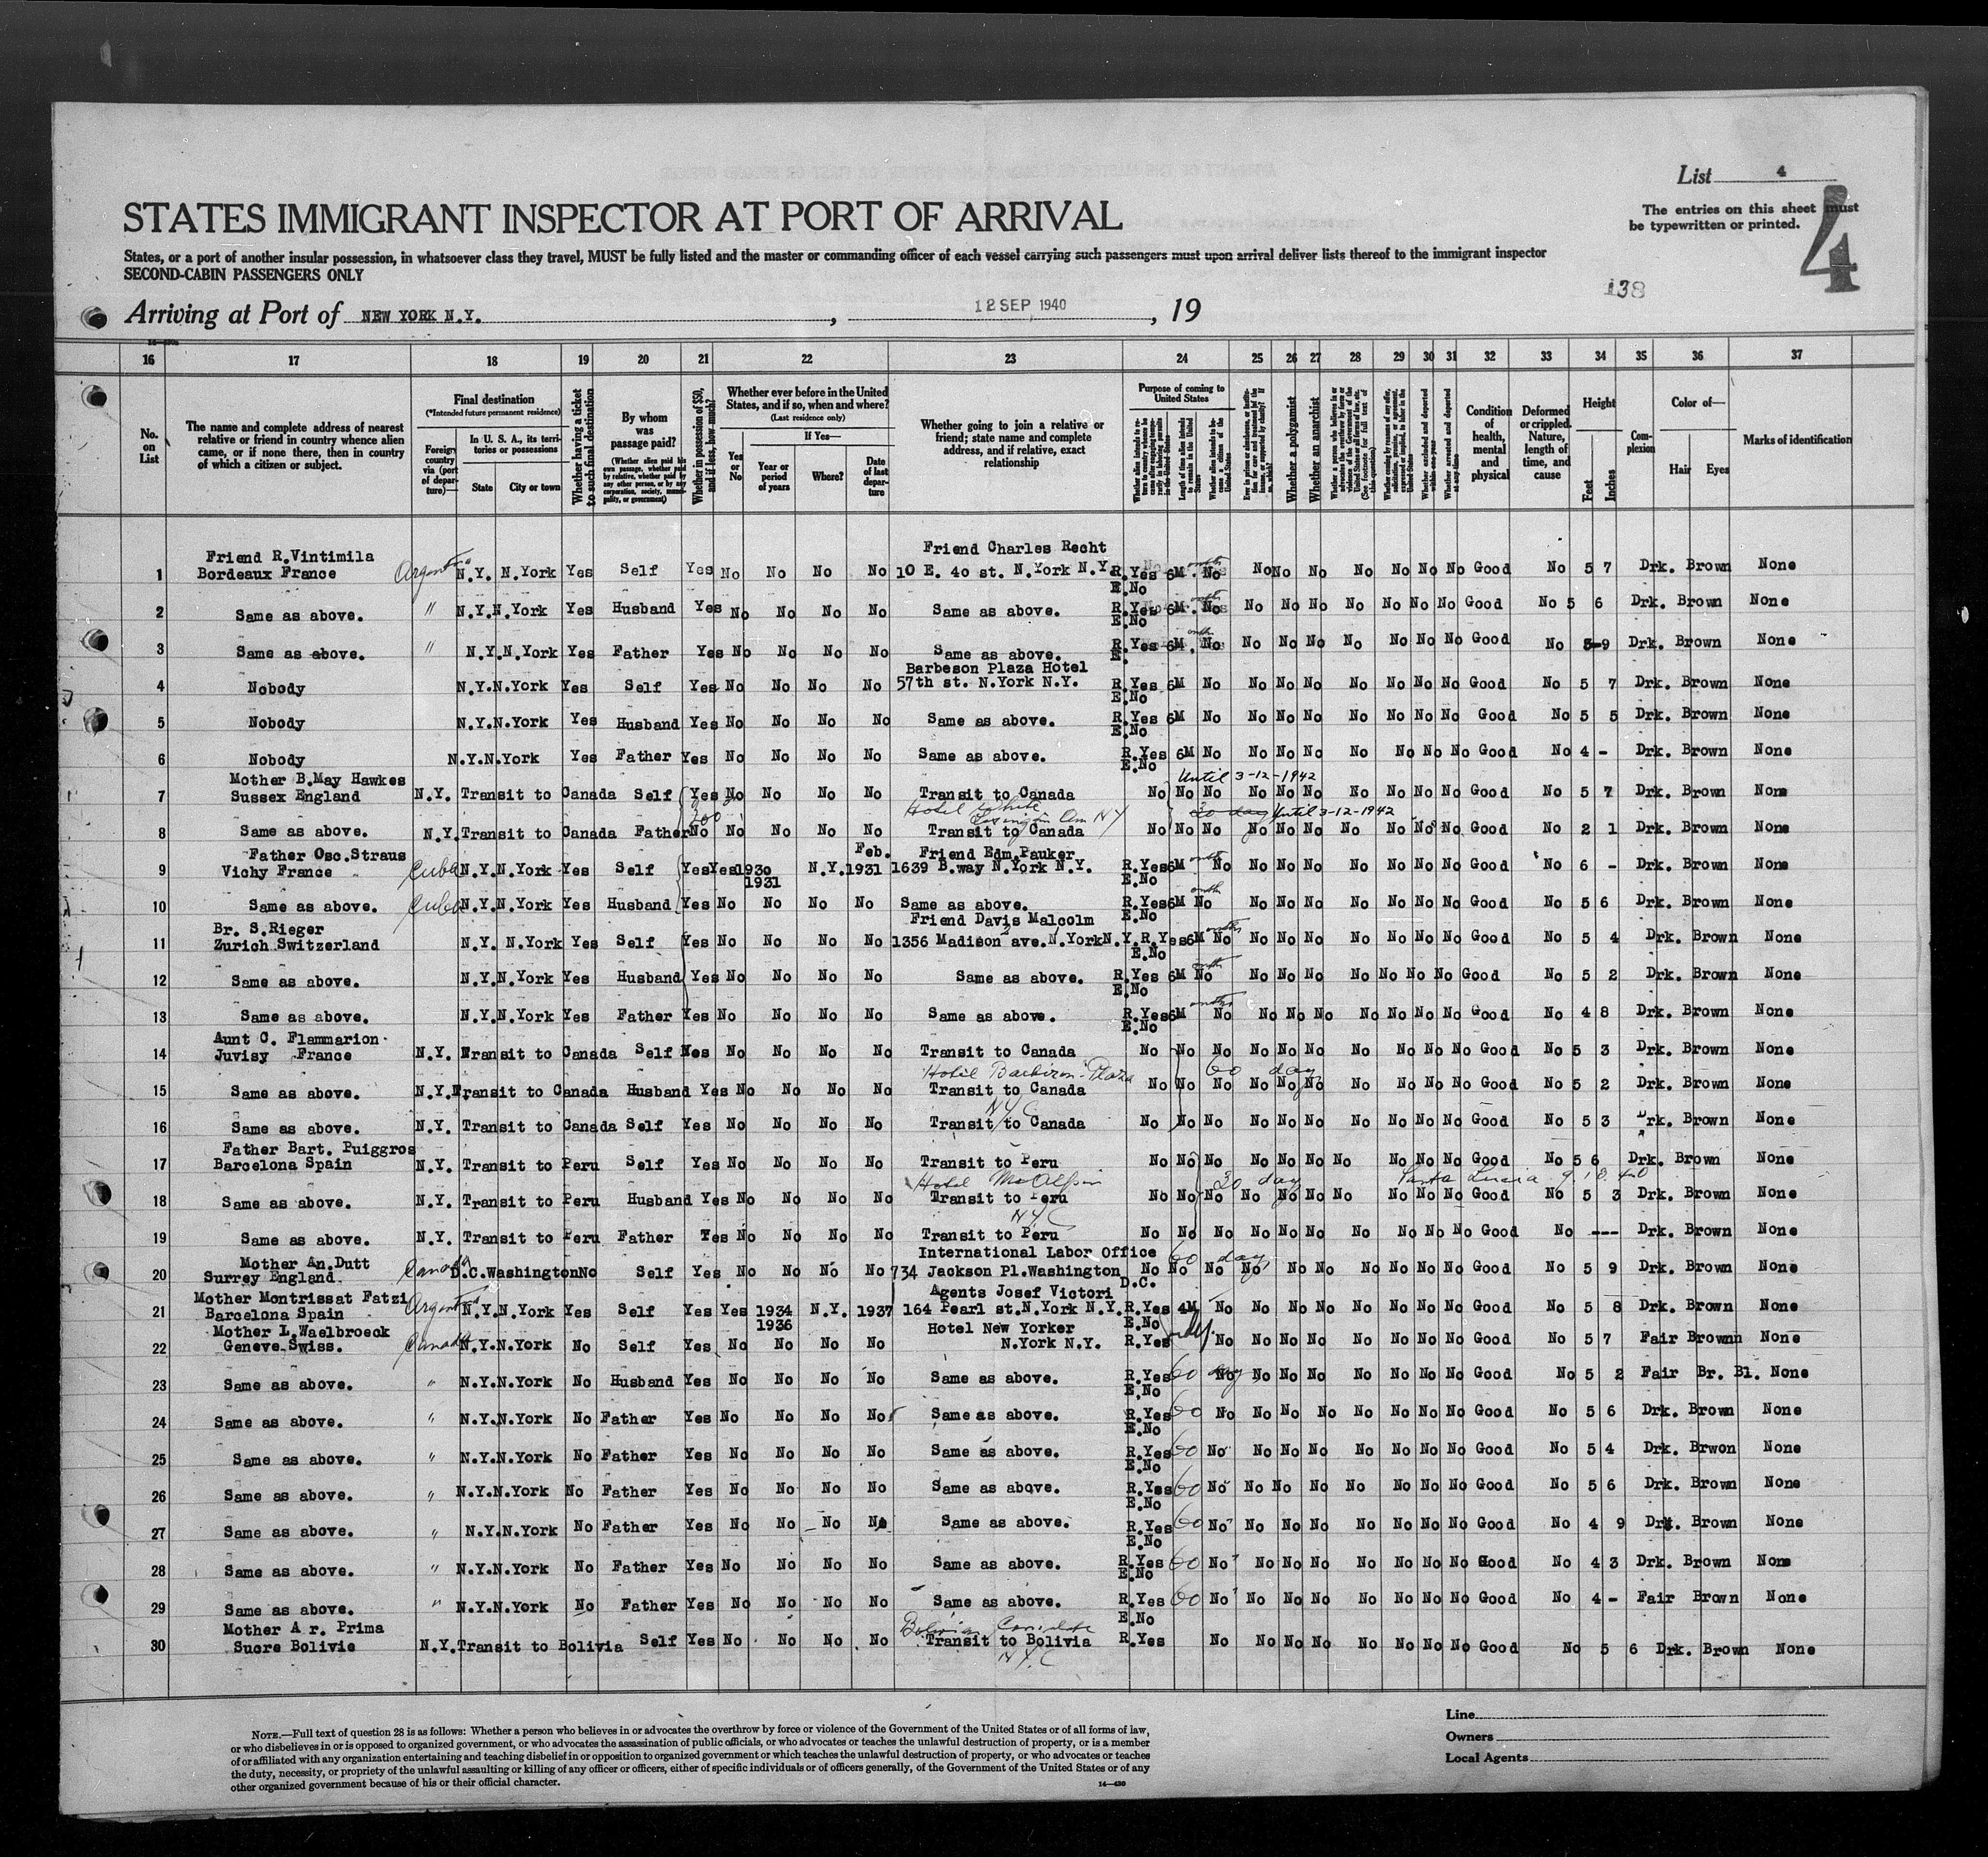 List 4
The entries on this sheet must
be typewritten or printed.
4
138
STATES IMMIGRANT INSPECTOR AT PORT OF ARRIVAL
States, or a port of another insular possession, in whatsoever class they travel, MUST be fully listed and the master or commanding officer of each vessel carrying such passengers must upon arrival deliver lists thereof to the immigrant inspector
SECOND-CABIN PASSENGERS ONLY
Arriving at Port of NEW YORK N.Y. , 12 SEP 1940 , 19
16 17 18 19 20 21 22 23 24 25 26 27 28 29 30 31 32 33 34 35 36 37
No. on List
The name and complete address of nearest relative or friend in country whence alien came, or if none there, then in country of which a citizen or subject.
Final destination
(*Intended future permanent residence)
Foreign country via (port of departure)—
In U. S. A., its territories or possessions
State City or town
Whether having a ticket to such final destination
By whom was passage paid?
(Whether alien paid his own passage, whether paid by relative, whether paid by any other person, or by any corporation, society, municipality, or government)
Whether in possession of $50, and if less, how much?
Whether ever before in the United States, and if so, when and where?
(Last residence only)
Yes or No
If Yes—
Year or period of years
Where?
Date of last departure
Whether going to join a relative or friend; state name and complete address, and if relative, exact relationship
Purpose of coming to United States
Whether a polygamist
Whether an anarchist
Condition of health, mental and physical
Deformed or crippled. Nature, length of time, and cause
Height
Feet Inches
Complexion
Color of—
Hair Eyes
Marks of identification
Friend R.Vintimila Friend Charles Recht
1 Bordeaux France Argentina N.Y. N.York Yes Self Yes No No No No 10 E. 40 st. N.York N.Y. R.Yes 6M No No No No No No No No Good No 5 7 Drk. Brown None
E.No
2 Same as above. " N.Y.N.York Yes Husband Yes No No No No Same as above. R.Yes 6M No No No No No No No No Good No 5 6 Drk. Brown None
E.No
3 Same as above. " N.Y.N.York Yes Father Yes No No No No Same as above. R.Yes 6M No No No No No No No No Good No 5-9 Drk. Brown None
E.
Barbeson Plaza Hotel
4 Nobody N.Y.N.York Yes Self Yes No No No No 57th st. N.York N.Y. R.Yes 6M No No No No No No No No Good No 5 7 Drk. Brown None
E.No
5 Nobody N.Y.N.York Yes Husband Yes No No No No Same as above. R.Yes 6M No No No No No No No No Good No 5 5 Drk. Brown None
E.No
6 Nobody N.Y.N.York Yes Father Yes No No No No Same as above. R.Yes 6M No No No No No No No No Good No 4 - Drk. Brown None
E.No
Mother B.May Hawkes Until 3-12-1942
7 Sussex England N.Y. Transit to Canada Self Yes No No No No Transit to Canada No No No No No No No No No No Good No 5 7 Drk. Brown None
200 Hotel White Lexington Ave NY 30 day Until 3-12-1942
8 Same as above. N.Y. Transit to Canada Father No No No No No Transit to Canada No No No No No No No No No No Good No 2 1 Drk. Brown None
Father Osc.Straus Feb. Friend Edm.Pauker
9 Vichy France Cuba N.Y.N.York Yes Self Yes Yes 1930 N.Y. 1931 1639 B.way N.York N.Y. R.Yes 6M No No No No No No No No Good No 6 - Drk. Brown None
1931 E.No
10 Same as above. Cuba N.Y.N.York Yes Husband Yes No No No No Same as above. R.Yes 6M No No No No No No No No Good No 5 6 Drk. Brown None
E.No
Br. S.Rieger Friend Davis Malcolm
11 Zurich Switzerland N.Y. N.York Yes Self Yes No No No No 1356 Madison ave.N.York N.Y. R.Yes 6M No No No No No No No No Good No 5 4 Drk. Brown None
E.No
12 Same as above. N.Y.N.York Yes Husband Yes No No No No Same as above. R.Yes 6M No No No No No No No No Good No 5 2 Drk. Brown None
E.No
13 Same as above. N.Y.N.York Yes Father Yes No No No No Same as above. R.Yes 6M No No No No No No No No Good No 4 8 Drk. Brown None
E.No
Aunt C. Flammarion
14 Juvisy France N.Y. Transit to Canada Self Yes No No No No Transit to Canada No No No No No No No No No No Good No 5 3 Drk. Brown None
Hotel Barbizon-Plaza 60 day
15 Same as above. N.Y. Transit to Canada Husband Yes No No No No Transit to Canada No No No No No No No No No No Good No 5 2 Drk. Brown None
NYC
16 Same as above. N.Y. Transit to Canada Self Yes No No No No Transit to Canada No No No No No No No No No No Good No 5 3 Drk. Brown None
Father Bart. Puiggros
17 Barcelona Spain N.Y. Transit to Peru Self Yes No No No No Transit to Peru No No No No No No No No No No Good No 5 6 Drk. Brown None
Hotel McAlpin 30 day Santa Lucia
18 Same as above. N.Y. Transit to Peru Husband Yes No No No No Transit to Peru No No No No No No No No No No Good No 5 3 Drk. Brown None
NYC
19 Same as above. N.Y. Transit to Peru Father Yes No No No No Transit to Peru No No No No No No No No No No Good No --- Drk. Brown None
Mother An.Dutt International Labor Office 60 day
20 Surrey England. Canada D.C.Washington No Self Yes No No No No 734 Jackson Pl.Washington No No No No No No No No No No Good No 5 9 Drk. Brown None
D.C.
Mother Montrissat Fatzi Agents Josef Victori
21 Barcelona Spain Argentina N.Y.N.York Yes Self Yes Yes 1934 N.Y. 1937 164 Pearl st.N.York N.Y. R.Yes 4M No No No No No No No No Good No 5 8 Drk. Brown None
1936 E.No
Mother L.Waelbroeck Hotel New Yorker
22 Geneve.Swiss. Canada N.Y.N.York No Self Yes No No No No N.York N.Y. R.Yes No No No No No No No No Good No 5 7 Fair Brownn None
23 Same as above. " N.Y.N.York No Husband Yes No No No No Same as above. R.Yes 60 day No No No No No No No No Good No 5 2 Fair Br. Bl. None
E.No
24 Same as above. " N.Y.N.York No Father Yes No No No No Same as above. R.Yes 60 No No No No No No No No Good No 5 6 Drk. Brown None
E.No
25 Same as above. " N.Y.N.York No Father Yes No No No No Same as above. R.Yes 60 No No No No No No No No Good No 5 4 Drk. Brwon None
E.No
26 Same as above. " N.Y.N.York No Father Yes No No No No Same as above. R.Yes 60 No No No No No No No No Good No 5 6 Drk. Brown None
E.No
27 Same as above. " N.Y.N.York No Father Yes No No No No Same as above. R.Yes 60 No No No No No No No No Good No 4 9 Drk. Brown None
E.No
28 Same as above. " N.Y.N.York No Father Yes No No No No Same as above. R.Yes 60 No No No No No No No No Good No 4 3 Drk. Brown None
E.No
29 Same as above. " N.Y.N.York No Father Yes No No No No Same as above. R.Yes 60 No No No No No No No No Good No 4 - Fair Brown None
E.No
Mother A r. Prima Bolivian Consulate
30 Sucre Bolivie N.Y. Transit to Bolivia Self Yes No No No No Transit to Bolivia R.Yes No No No No No No No No Good No 5 6 Drk. Brown None
NYC
NOTE.—Full text of question 28 is as follows: Whether a person who believes in or advocates the overthrow by force or violence of the Government of the United States or of all forms of law,
or who disbelieves in or is opposed to organized government, or who advocates the assassination of public officials, or who advocates or teaches the unlawful destruction of property, or is a member
of or affiliated with any organization entertaining and teaching disbelief in or opposition to organized government or which teaches the unlawful destruction of property, or who advocates or teaches
the duty, necessity, or propriety of the unlawful assaulting or killing of any officer or officers, either of specific individuals or of officers generally, of the Government of the United States or of any
other organized government because of his or their official character.
14—430
Line
Owners
Local Agents